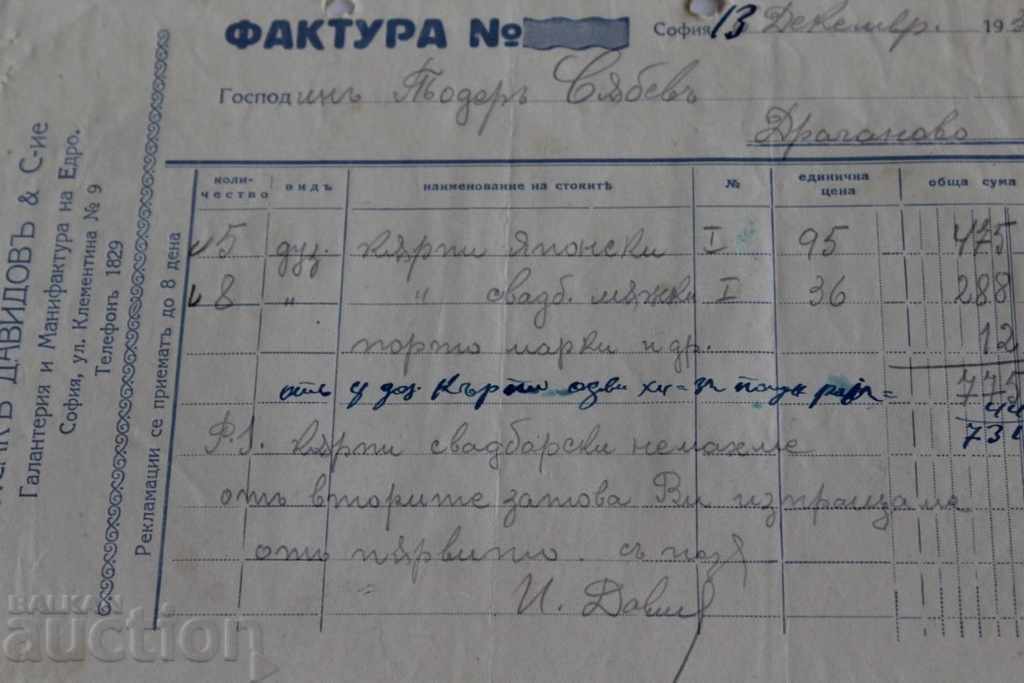 ФАКТУРА №
София 13 Декемвр. 193
Господинъ Тодоръ Сябевъ
Драганово
ДАВИДОВЪ & С-ие
Галантерия и Манифактура на Едро.
София, ул. Клементина № 9
Телефонъ 1829
Рекламации се приематъ до 8 дена
коли-чество видъ наименование на стокитѣ № единична цена обща сума
5 дуз. кърпи японски I 95 475
8 " " свадб. мѫжки I 36 288
порто марки и др. 12
775
отъ доз. Кърпи =
44
731
P.S. кърпи свадбарски немахме
отъ вторите затова Ви изпращаме
отъ първите. съ поз
И. Давид
BALKAN
auction